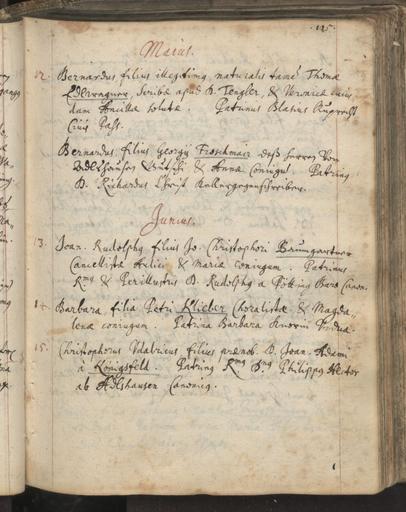 125.
Maius.
12. Bernardus filius illegitimus naturalis tamen Thomæ
scribæ apud D. Tengler, & Veronicæ
dam Ancillæ solutæ. Patrinus Blasius Ruprecht
Civis Pass.
Bernardus filius Georgii Froschmair deß Herren Von
& Anna Coniugum. Patrinus
D. Richardus
Junius.
13. Joan. Rudolphus filius Jo. Christophori Baumgartner
Cancellistæ Aulici & Mariæ coniugum. Patrinus
Rmus & Perillustris D. Rudolphus a Pötting Baro Canon.
14. Barbara filia Petri Klieber Choralistæ & Magda-
lenæ coniugum. Patrina Barbara Knorrin Vidua.
15. Christophorus Udalricus filius prænob. D. Joan. Adami
à Königsfeld. Patrinus Rmus Dnus Philippus Hector
ab Adlshausen Canonicus.